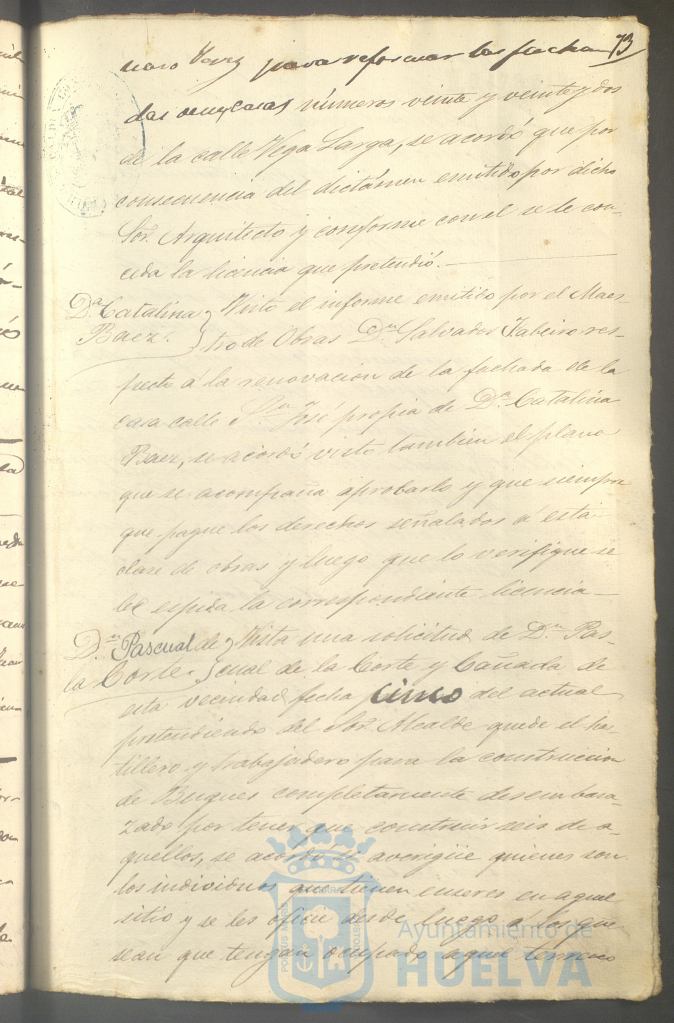 73
para reformar las facha
das de sus casas números veinte y veinte y dos
de la calle Vega Larga, se acordó que por
consecuencia del dictámen emitido por dicho
Sor. Arquitecto y conforme con el se le con-
ceda la licencia que pretendió.
Da. Catalina Baez. Visto el informe emitido por el Maes-
tro de Obras Dn. Salvador res-
pecto á la renovacion de la fachada de la
casa calle Sn. José propia de Da. Catalina
Baez, se acordó visto tambien el plano
que se acompaña aprobarlo y que siempre
que pague los derechos señalados á esta
clase de obras y luego que lo verifique se
le espida la correspondiente licencia
Dn. Pascual de la Corte. Vista una solicitud de Dn. Pas-
cual de la Corte y Cañada de
esta vecindad fecha cinco del actual
pretendiendo del Sor. Alcalde quede el as-
tillero y trabajadero para la construccion
de Buques completamente desembara-
zado por tener que construir seis de a-
quellos, se acordó se averigüe quienes son
los individuos que tienen enseres en aquel
sitio y se les oficie desde luego á los que
sean que tengan ocupado aquel terreno
Ayuntamiento de
HUELVA